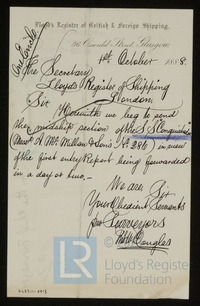 Lloyd's Register of British & Foreign Shipping,
36 Oswald Street, Glasgow
One Enclo
1st October 1888.
The Secretary
Lloyds Register of Shipping
London.
Sir
Herewith we beg to send
the midship section of the S.S.
(Messrs A. McMillan & Sons No 286) in view
of the first entry Report being forwarded
in a day or two,—
We are Sir
Your Obedient Servants
for Surveyors
Lloyd's Register
Foundation